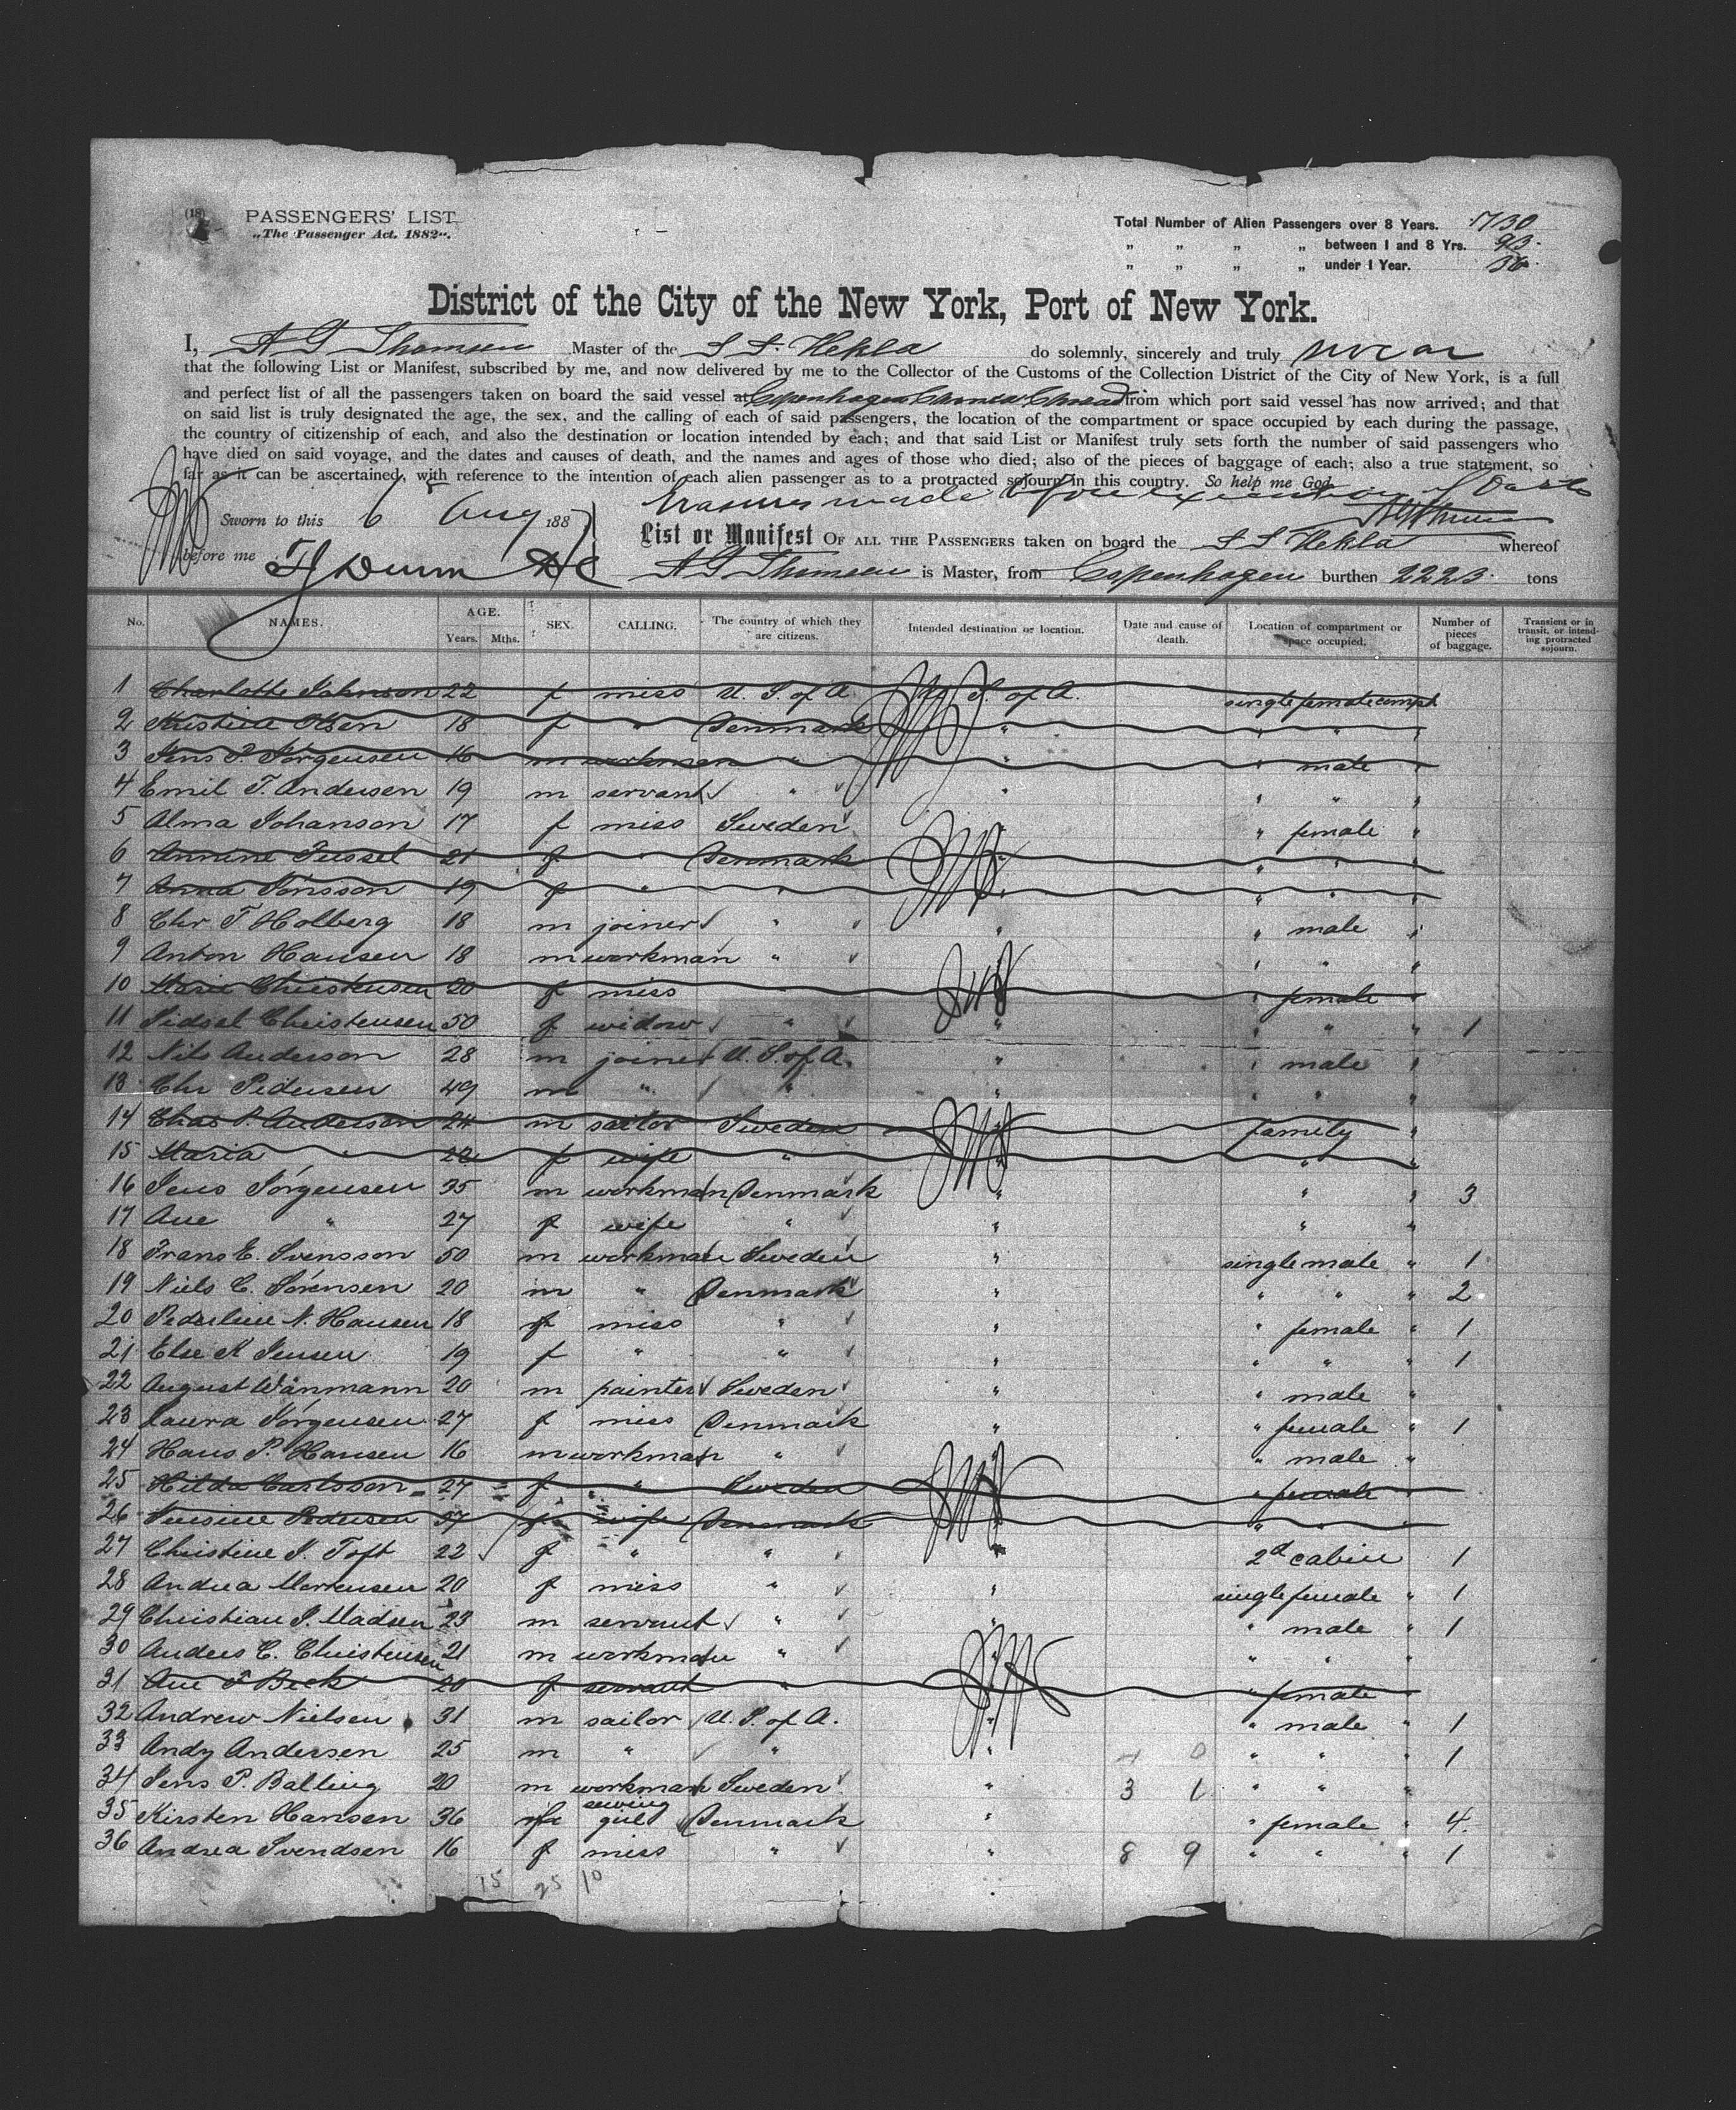 (18)
PASSENGERS' LIST
„The Passenger Act, 1882".
Total Number of Alien Passengers over 8 Years. 730
„ „ „ „ between 1 and 8 Yrs. 93.
„ „ „ „ under 1 Year. 36.
District of the City of the New York, Port of New York.
I, A G Thomsen Master of the S S. Hekla do solemnly, sincerely and truly swear
that the following List or Manifest, subscribed by me, and now delivered by me to the Collector of the Customs of the Collection District of the City of New York, is a full
and perfect list of all the passengers taken on board the said vessel at Copenhagen from which port said vessel has now arrived; and that
on said list is truly designated the age, the sex, and the calling of each of said passengers, the location of the compartment or space occupied by each during the passage,
the country of citizenship of each, and also the destination or location intended by each; and that said List or Manifest truly sets forth the number of said passengers who
have died on said voyage, and the dates and causes of death, and the names and ages of those who died; also of the pieces of baggage of each; also a true statement, so
far as it can be ascertained, with reference to the intention of each alien passenger as to a protracted sojourn in this country. So help me God.
Erasures made before execution of Oath
Sworn to this 6 Aug 1887
before me
List or Manifest OF ALL THE PASSENGERS taken on board the S S Hekla whereof
A G Thomsen is Master, from Copenhagen burthen 2223. tons
No. NAMES. AGE. Years. Mths. SEX. CALLING. The country of which they are citizens. Intended destination or location. Date and cause of death. Location of compartment or space occupied. Number of pieces of baggage. Transient or in transit, or intending protracted sojourn.
1 Charlotte Johnson 22 f miss U. S. of A. U. S. of A. single female compt
2 Kristina Olsen 18 f " Denmark " " " "
3 Jens P. Jörgensen 16 m workman " " " male "
4 Emil T. Andersen 19 m servant " " " " "
5 Alma Johanson 17 f miss Sweden " " female "
6 21 f " Denmark " " " "
7 Anna Jönsson 19 f " " " " " "
8 Chr T Holberg 18 m joiner " " " male "
9 Anton Hansen 18 m workman " " " " "
10 Marie Christensen 20 f miss " " female "
11 Sidsel Christensen 50 f widow " " " " " 1
12 Nils Anderson 28 m joiner U. S. of A. " " male "
13 Chr Pedersen 49 m " " " " " "
14 Chas P. Anderson 24 m sailor Sweden " family "
15 Maria " 22 f wife " " " "
16 Jens Jörgensen 35 m workman Denmark " " " 3
17 Ane " 27 f wife " " " "
18 Frans E. Svensson 50 m workman Sweden " single male " 1
19 Niels C. Sörensen 20 m " Denmark " " " " 2
20 Pederline N. Hansen 18 f miss " " " female " 1
21 Else K Jensen 19 f " " " " " " 1
22 August Wånmann 20 m painter Sweden " " male "
23 Laura Jörgensen 27 f miss Denmark " " female " 1
24 Hans P. Hansen 16 m workman " " " male "
25 Hilda Carlsson 27 f " Sweden " " female "
26 Pedersen 57 f wife Denmark " " " "
27 Christine J. Toft 22 f " " " 2d cabin 1
28 Andrea Mortensen 20 f miss " " single female " 1
29 Christian P. Madsen 23 m servant " " " male " 1
30 Anders C. Christensen 21 m workman " " " " "
31 Ane F Beck 20 f servant " " " female
32 Andrew Nielsen 31 m sailor U. S. of A. " " male " 1
33 Andy Andersen 25 m " " " " " " 1
34 Jens P. Balling 20 m workman Sweden " 3 1 " " "
35 Kirsten Hansen 36 f sewing girl Denmark " " female " 4.
36 Andrea Svendsen 16 f miss " " 8 9 " " " 1
15 25 10